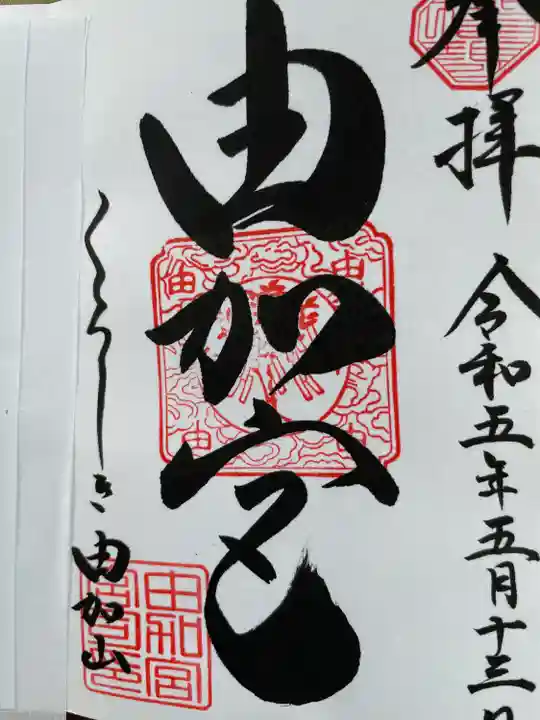 奉拝
令和五年五月十三日
由加宮
くらしき 由加山
由
由
由
由
由加宮